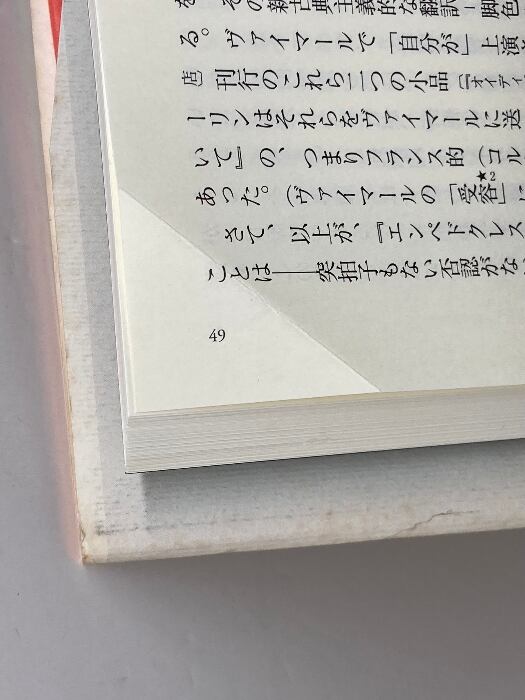 を、その新古典主義的な翻訳=脚色
る。ヴァイマールで「自分が」上演
店刊行のこれら二つの小品(『オイディ
ーリンはそれらをヴァイマールに送
いて』の、つまりフランス的(コル
あった。(ヴァイマールの「受容★2」に
さて、以上が、『エンペドクレス
ことは――突拍子もない否認がな
49